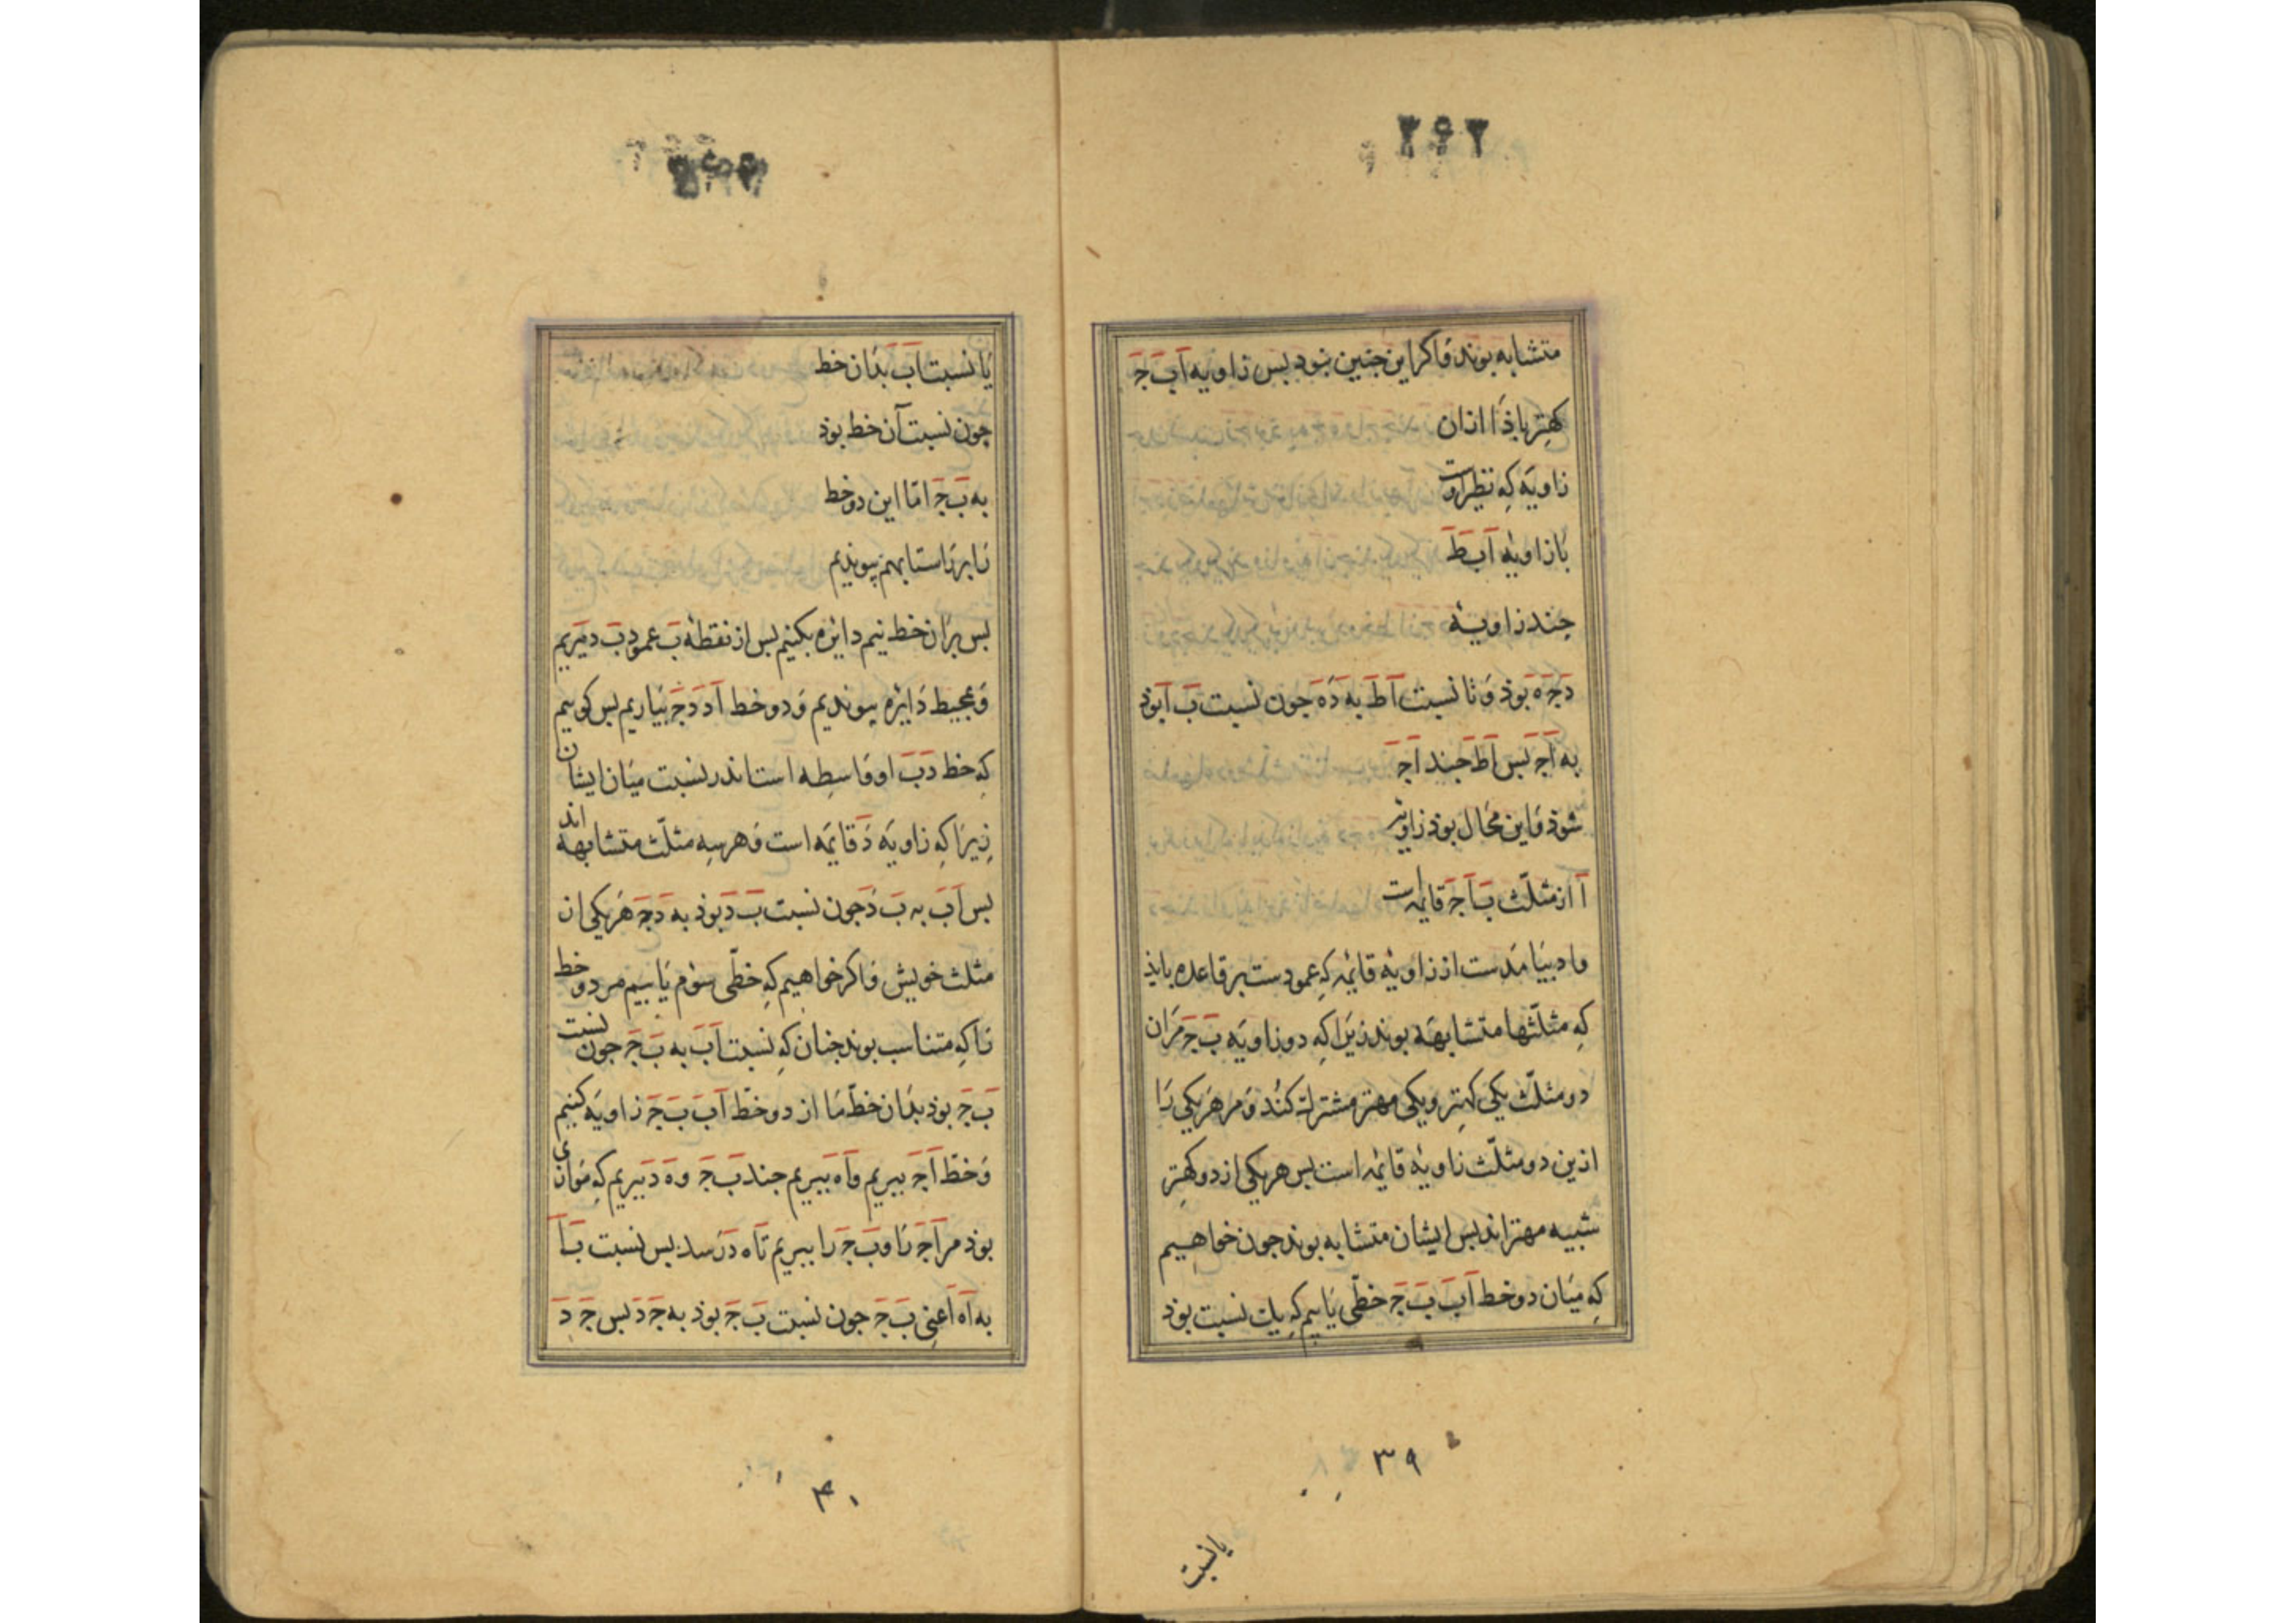 ۲۶۲
متشابه بوند وَاکر این جنین نبود بس زاویه اَ بَ جَ
کهتر باذ یا ازان
زاویه که نظیر اوست
تا زاویهٔ اَ بَ طَ
جند زاویهٔ
دَ جَ هَ بوذ وَ تا نسبت اَ طَ به دَ هَ جون نسبت بَ اَ بوذ
به اَ جَ بس اَ طَ جند اَ جَ
شوذ وَاین محال بوذ زاویه
اَ از مثلّث بَ اَ جَ قایمه است
بیامدست از زاویهٔ قایمه که عمودست بر قاعده بایذ
که مثلّثها متشابهه بوند زیرا که دو زاویه بَ جَ مران
دو مثلّث یکی کهتر و یکی مهتر مشترک کنند وَ مر هر یکی را
ازین دو مثلّث زاویهٔ قایمه است بس هر یکی از دو کهتر
شبیه مهتراند بس ایشان متشابه بوند جون خواهیم
که میان دو خط اَ بَ بَ جَ خطّی یابیم که یک نسبت بوذ
۳۹
یا نسبت
یا نسبت اَ بَ بذان خط
جون نسبت آن خط بوذ
به بَ جَ امّا این دو خط
را بر راستا بهم پیوندیم
بس بران خط نیم دایره بکنیم بس از نقطهٔ بَ عمود بَ دَ بَریم
وَ بمحیط دایره پیوندیم وَ دو خط اَ دَ دَ جَ بیاریم بس کوییم
که خط دَ بَ او وَاسطه است اندر نسبت میان ایشان
زیرا که زاویه دَ قایمه است وَ هر سه مثلّث متشابهه اند
بس اَ بَ به بَ دَ جون نسبت بَ دَ بوذ به دَ جَ هر یکی از
مثلث خویش وَاکر خواهیم که خطّی سوم یابیم مر دو خط
را که متناسب بوند جنان که نسبت اَ بَ به بَ جَ جون نسبت
بَ جَ بوذ بذان خطّ ما از دو خطّ اَ بَ بَ جَ زاویه کنیم
وَ خطّ اَ جَ ببریم و اَ هَ ببریم جند بَ جَ و هَ دَ ببریم که موازی
بوذ مر اَ جَ را و بَ جَ را ببریم تا هَ دَ رسد بس نسبت بَ اَ
به اَ هَ اعنی بَ جَ جون نسبت بَ جَ بوذ به جَ دَ بس جَ دَ
۴۰